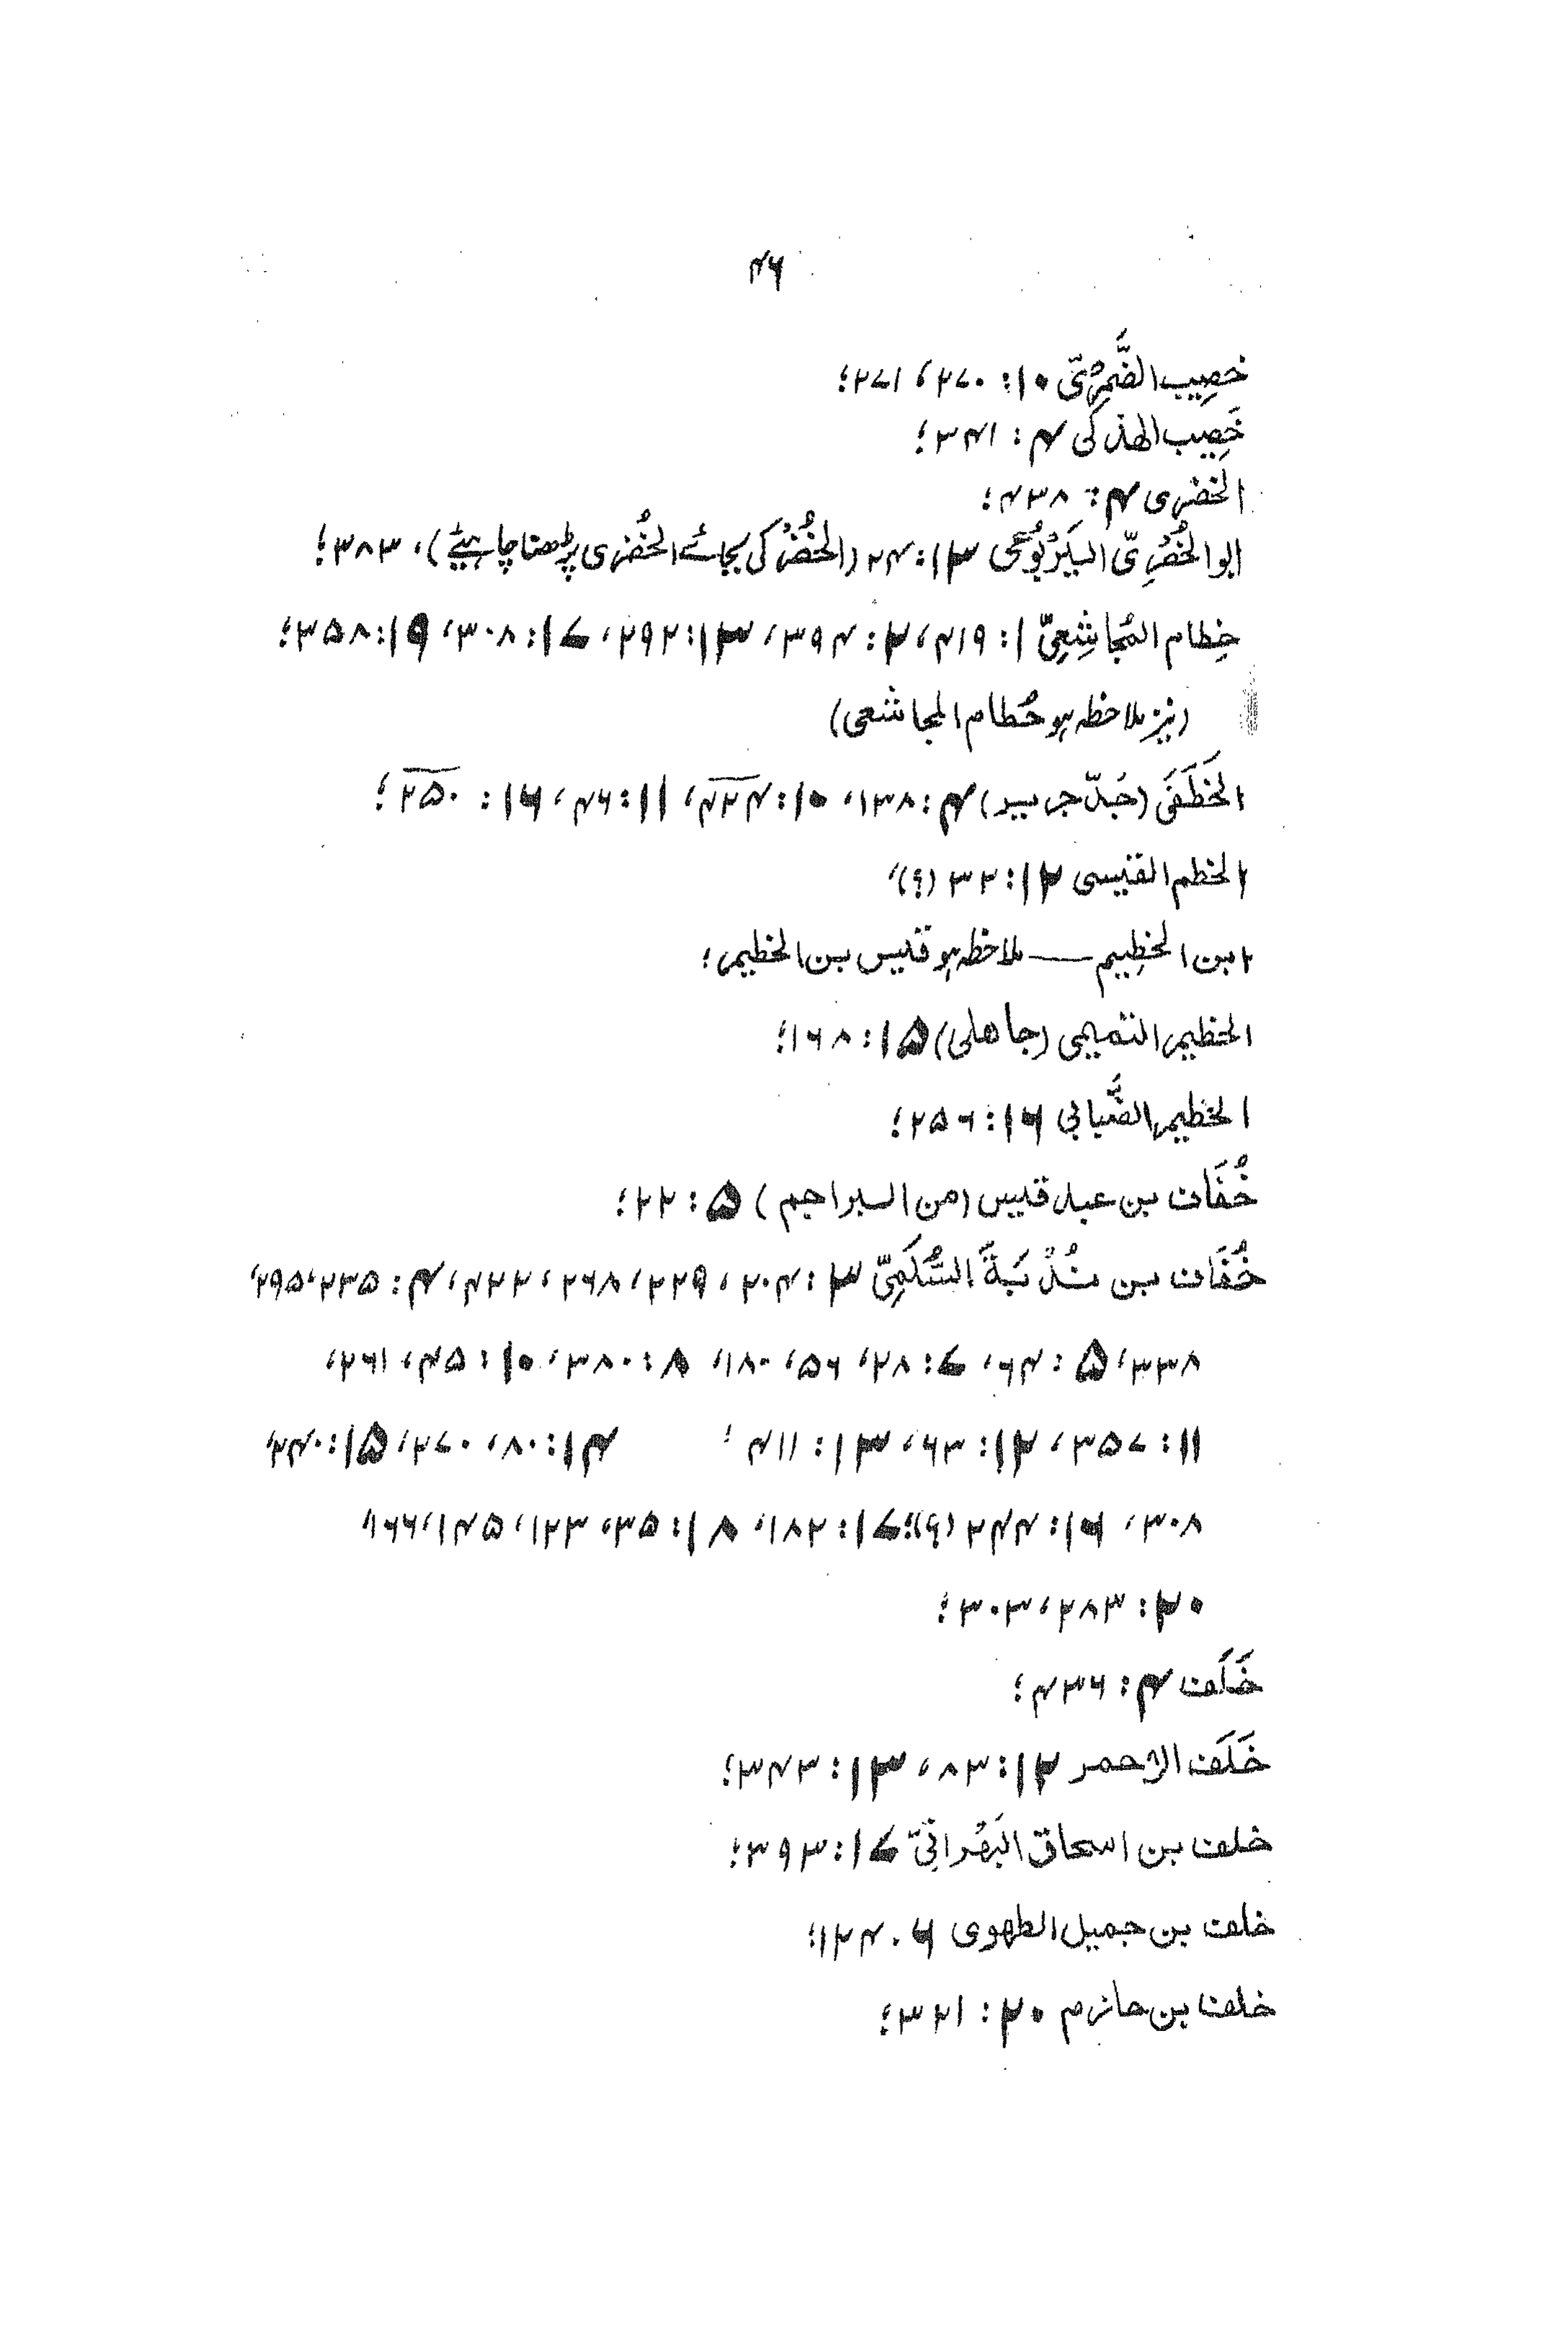 ۴۶
خصیب الضَّمْرِیّ ۱۰: ۲۷۰، ۲۷۱؛
خَصِیب الهذلی ۴: ۳۴۱؛
الخضری ۴: ۴۳۸؛
ابو الخُضْرِیّ الیَرْبُوعی ۱۳: ۲۴ (الخُضْر کی بجائے الخُضری پڑھنا چاہیئے)، ۳۸۳؛
خِطام المُجاشِعِیّ ۱: ۴۱۹، ۲: ۳۹۴، ۱۳: ۲۹۲، ۱۷: ۳۰۸، ۱۹: ۳۵۸؛
(نیز ملاحظہ ہو حُطام المجاشعی)
الخَطَفَی (جَدّ جریر) ۴: ۱۳۸، ۱۰: ۴۲۴، ۱۱: ۴۶، ۱۶: ۲۵۰؛
الخطم القیسی ۱۲: ۳۲ (؟)،
ابن الخطِیم — ملاحظہ ہو قیس بن الخطیم؛
الخطیم التمیمی (جاهلی) ۱۵: ۱۶۸؛
الخطیم الضَّبابی ۱۶: ۲۵۶؛
خُفَاف بن عبد قیس (من البراجم) ۵: ۲۲؛
خُفَاف بن نُدْبَةَ السُّلَمِیّ ۳: ۲۰۴، ۲۲۹، ۲۶۸، ۴۲۲، ۴: ۲۳۵، ۲۹۵،
۳۳۸، ۵: ۶۴، ۷: ۲۸، ۵۶، ۱۸۰، ۸: ۳۸۰، ۱۰: ۴۵، ۲۶۱،
۱۱: ۳۵۷، ۱۲: ۶۳، ۱۳: ۴۱۱؛ ۱۴: ۸۰، ۲۷۰، ۱۵: ۲۴۰،
۳۰۸، ۱۶: ۲۴۴ (؟)؛ ۱۷: ۱۸۲، ۱۸: ۳۵، ۱۲۳، ۱۴۵، ۱۶۶،
۲۰: ۲۸۳، ۳۰۳؛
خَلَف ۴: ۴۳۶؛
خَلَف الاحمر ۱۲: ۸۳، ۱۳: ۳۴۳؛
خلف بن اسحاق البَهْرانِیّ ۱۷: ۳۹۳؛
خلف بن جمیل الطهوی ۶. ۱۲۴؛
خلف بن حازم ۲۰: ۳۲۱؛